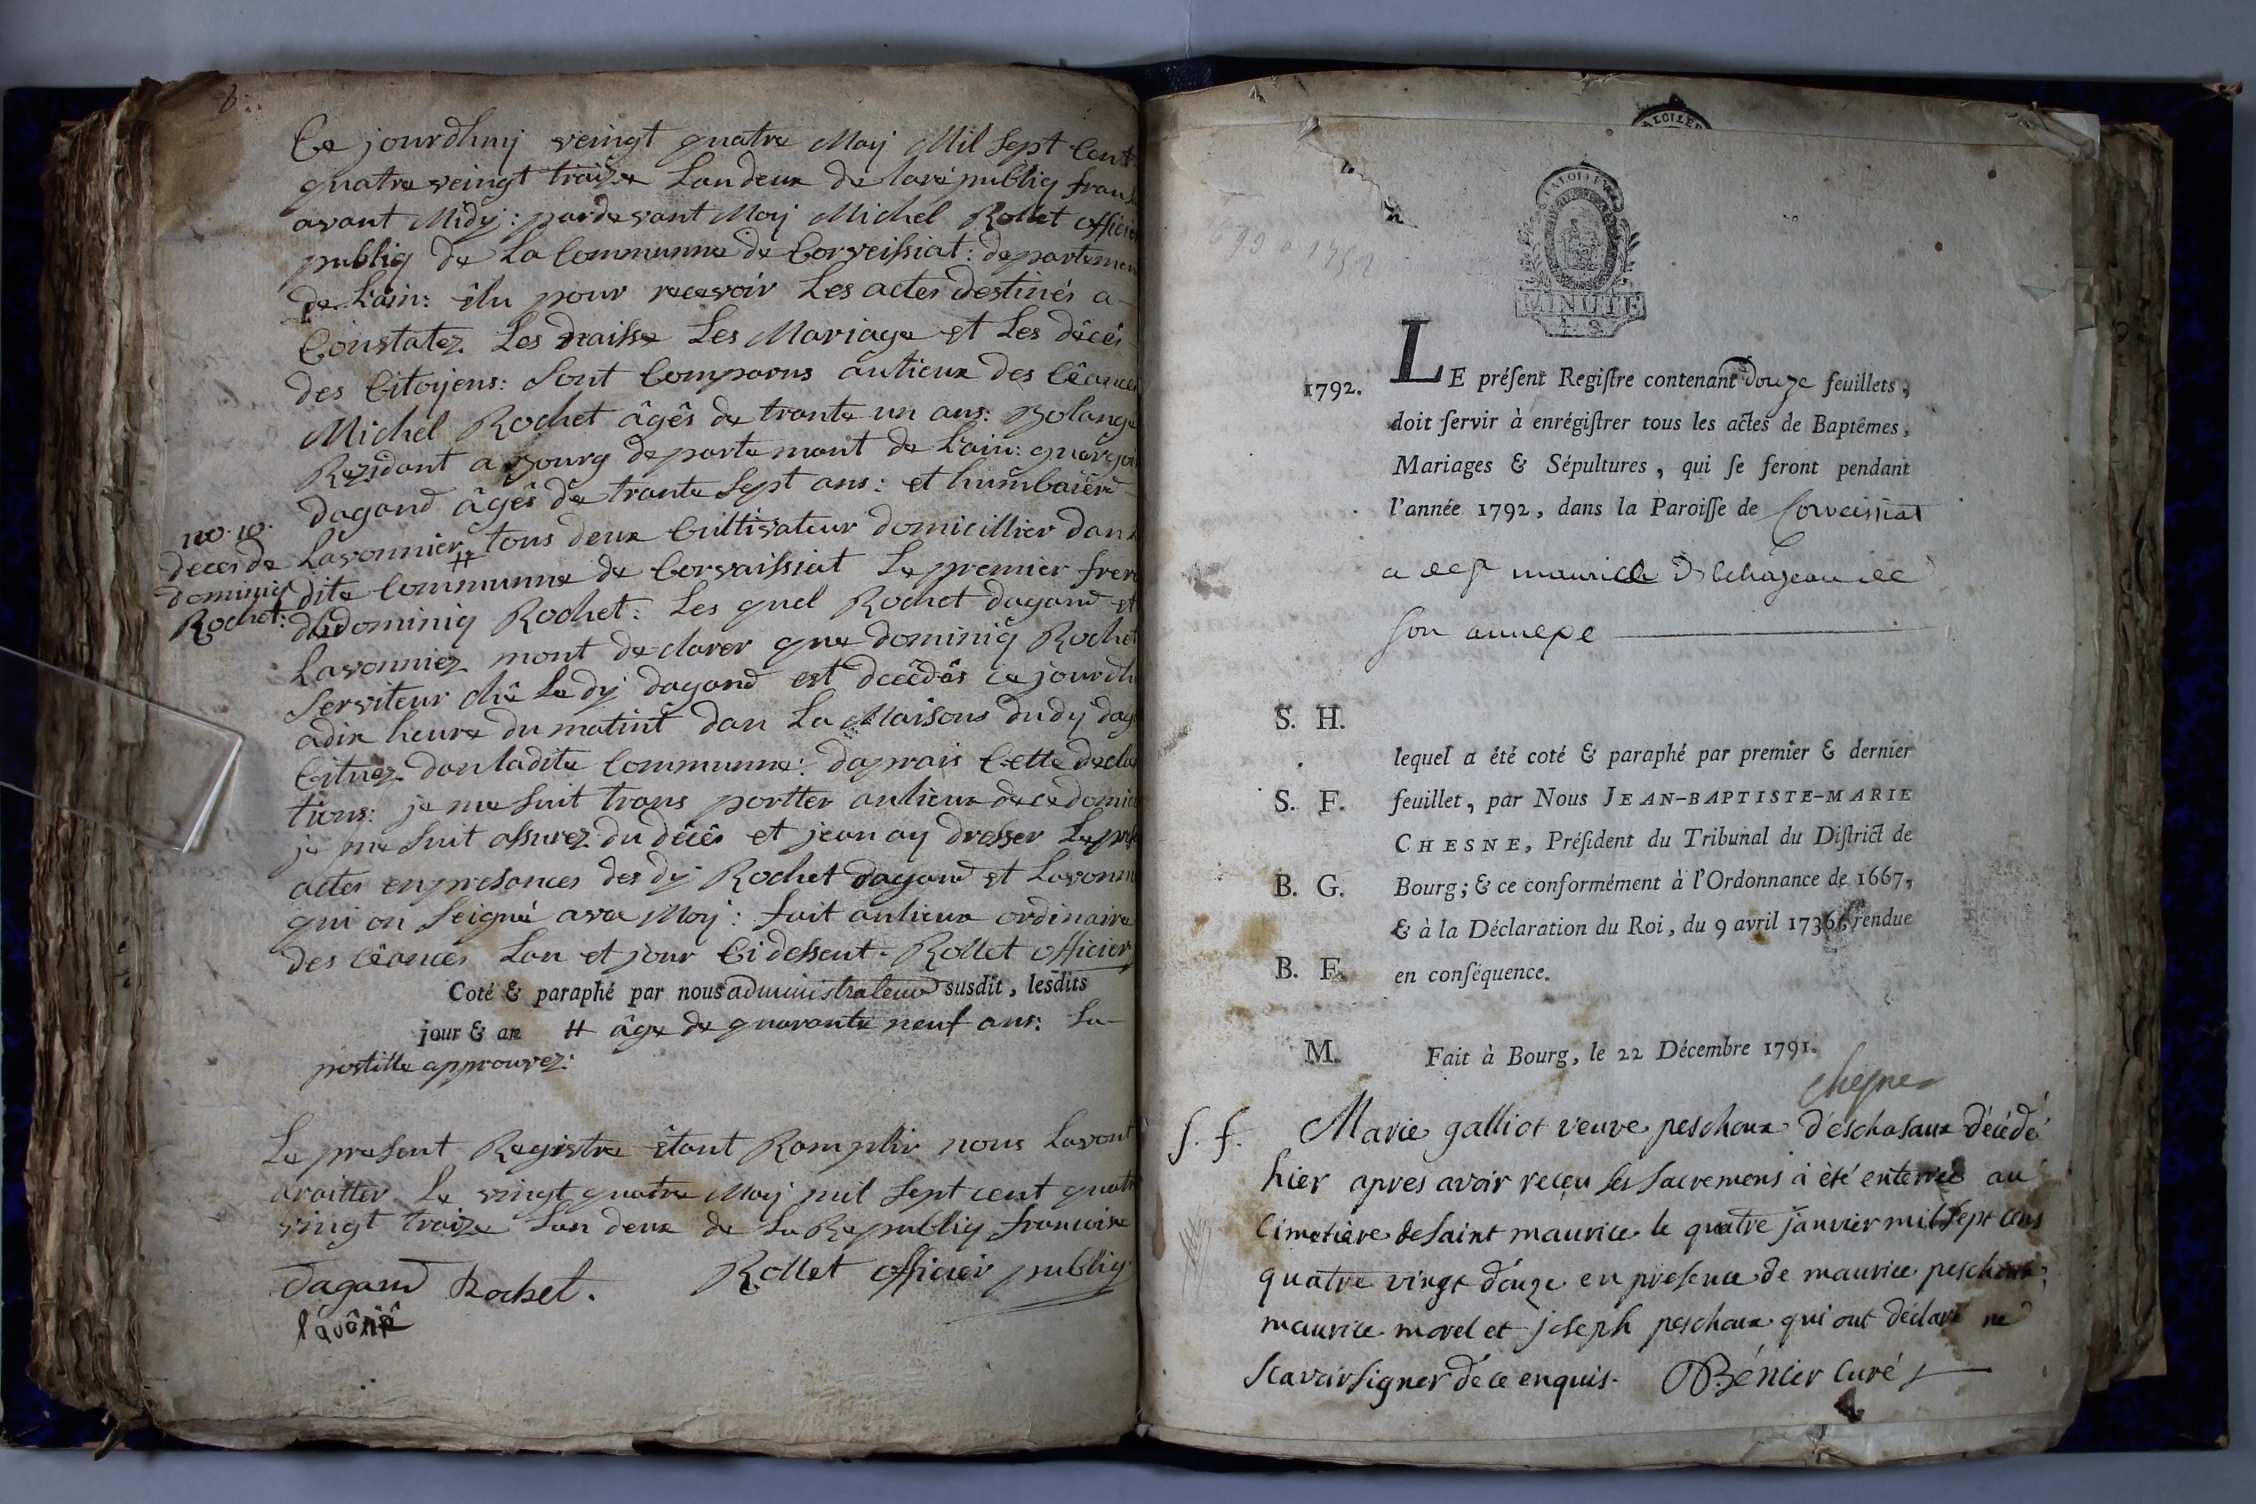 8.
Ce jourdhuy veingt quatre May Mil Sept Cent
quatre veingt traize Landeux de larépubliq frans
avant Midy : pardevant Moy Michel Rollet officie
publiq de La Communne de Corveissiat : departemen
de Lain : êlu pour recevoir Les actes destinés a
Constatez Les naisse Les Mariage et Les décês
des Citoyens : Sont Comparus aulieux des Cêances
Michel Rochet âgês de trante un ans :
Rezidant a Bourg departemant de Lain :
dagand âgês de trante Sept ans : et humbaire
no. 10.
deces de
dominiq
Rochet :
Lavonnier # tous deux Cultivateur domicillier dans
dite Communne de Corvaissiat Le premier frere
dudominiq Rochet : Les quel Rochet dagand et
Lavonniez mont declarer que dominiq Rochet
Serviteur chê Ledy dagand est dêcêdês ce jourdh
adix heure du matint dan La Maisons dudy dag
Cituez danladite Communne : daprais Cette decla
tions : je me Suit trans portter aulieux de ce domic
je me Suit assurez du dêcês et jean ay dresser Le pres
actes enpresances des dy Rochet dagand et Lavonn
qui on Seigné avec Moy : fait aulieux ordinaire
des Cêances Lan et jour Cidessent . Rollet officier
Coté & paraphé par nous administrateur susdit, lesdits
jour & an # âge de quarante neuf ans : La
postille approuvez :
Le present Registre êtant Ramplir nous Lavont
araitter Le vingt quatre May mil Sept cent quatr
vingt traize Lan deux de La Republiq francoise
dagand Rochet . Rollet officier publiq
lavône
MINUTE
1792. LE préſent Regiſtre contenant douze feuillets,
doit ſervir à enrégiſtrer tous les actes de Baptêmes,
Mariages & Sépultures, qui ſe feront pendant
l'année 1792, dans la Paroiſſe de Corveissiat
maurice
son annexe
S. H.
lequel a été coté & paraphé par premier & dernier
S. F. feuillet, par Nous JEAN-BAPTISTE-MARIE
CHESNE, Préſident du Tribunal du Diſtrict de
B. G. Bourg ; & ce conformément à l'Ordonnance de 1667,
& à la Déclaration du Roi, du 9 avril 1736, rendue
B. F. en conſéquence.
M. Fait à Bourg, le 22 Décembre 1791.
Chesne
S. F. Marie galliot veuve peschoux d'eschasaux décédé
hier apres avoir reçeu les sacremens à èté enterrée au
Cimetière de saint maurice le quatre janvier mil sept cens
quatre vingt douze en presence de maurice peschoux
maurice morel et joseph peschoux qui ont déclaré ne
scavoir signer de ce enquis . Béncier Curé